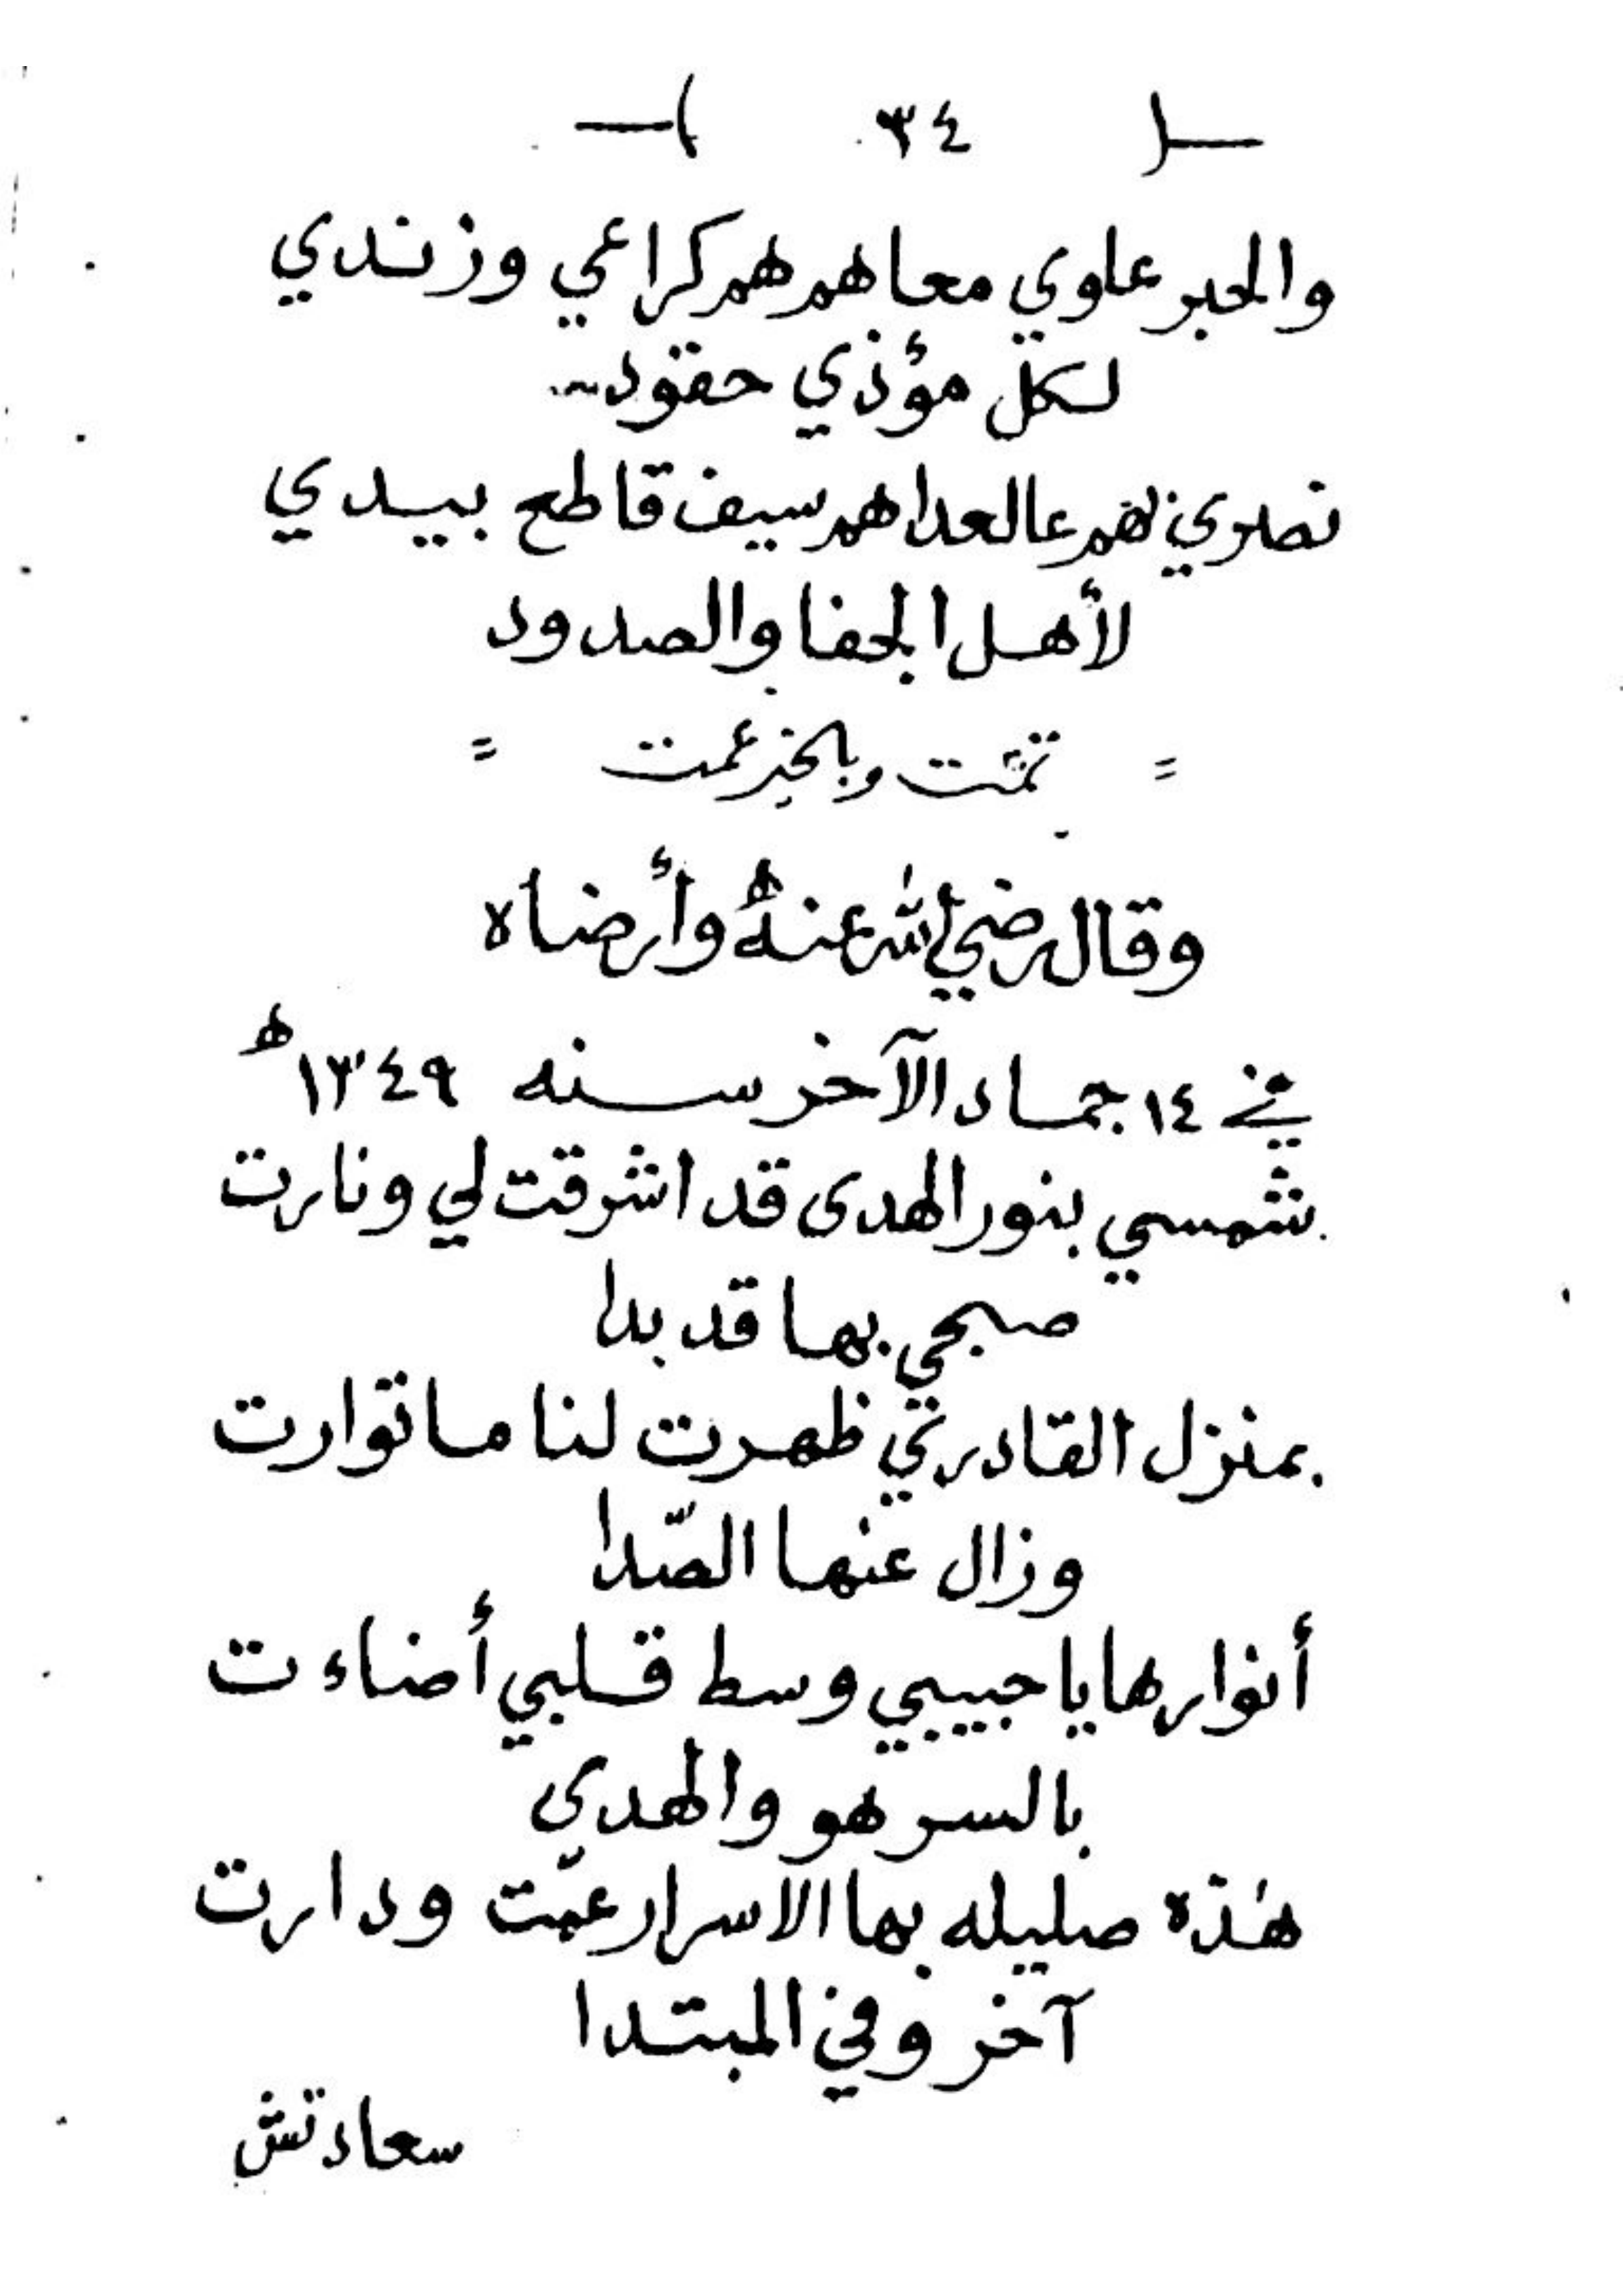 ( ٣٤ )
والحبر علوي معاهم هم كراعي وزندي
لكل مؤذي حقود
نصري بهم عالعدا هم سيف قاطع بيدي
لأهل الجفا والصدود
= تمّت وبالخير عمت =
وقال رضي الله عنهُ وأرضاه
في ١٤ جماد الآخر سنه ١٣٤٩ ھ
شمسي بنور الهدى قد اشرقت لي ونارت
صبحي بها قد بدا
بمنزل القادري ظهرت لنا ما توارت
وزال عنها الصّدا
أنوارها يا حبيبي وسط قلبي أضاءت
بالسر هو والهدى
هٰذه صليله بها الاسرار عمّت ودارت
آخر وفي المبتدا
سعادتش